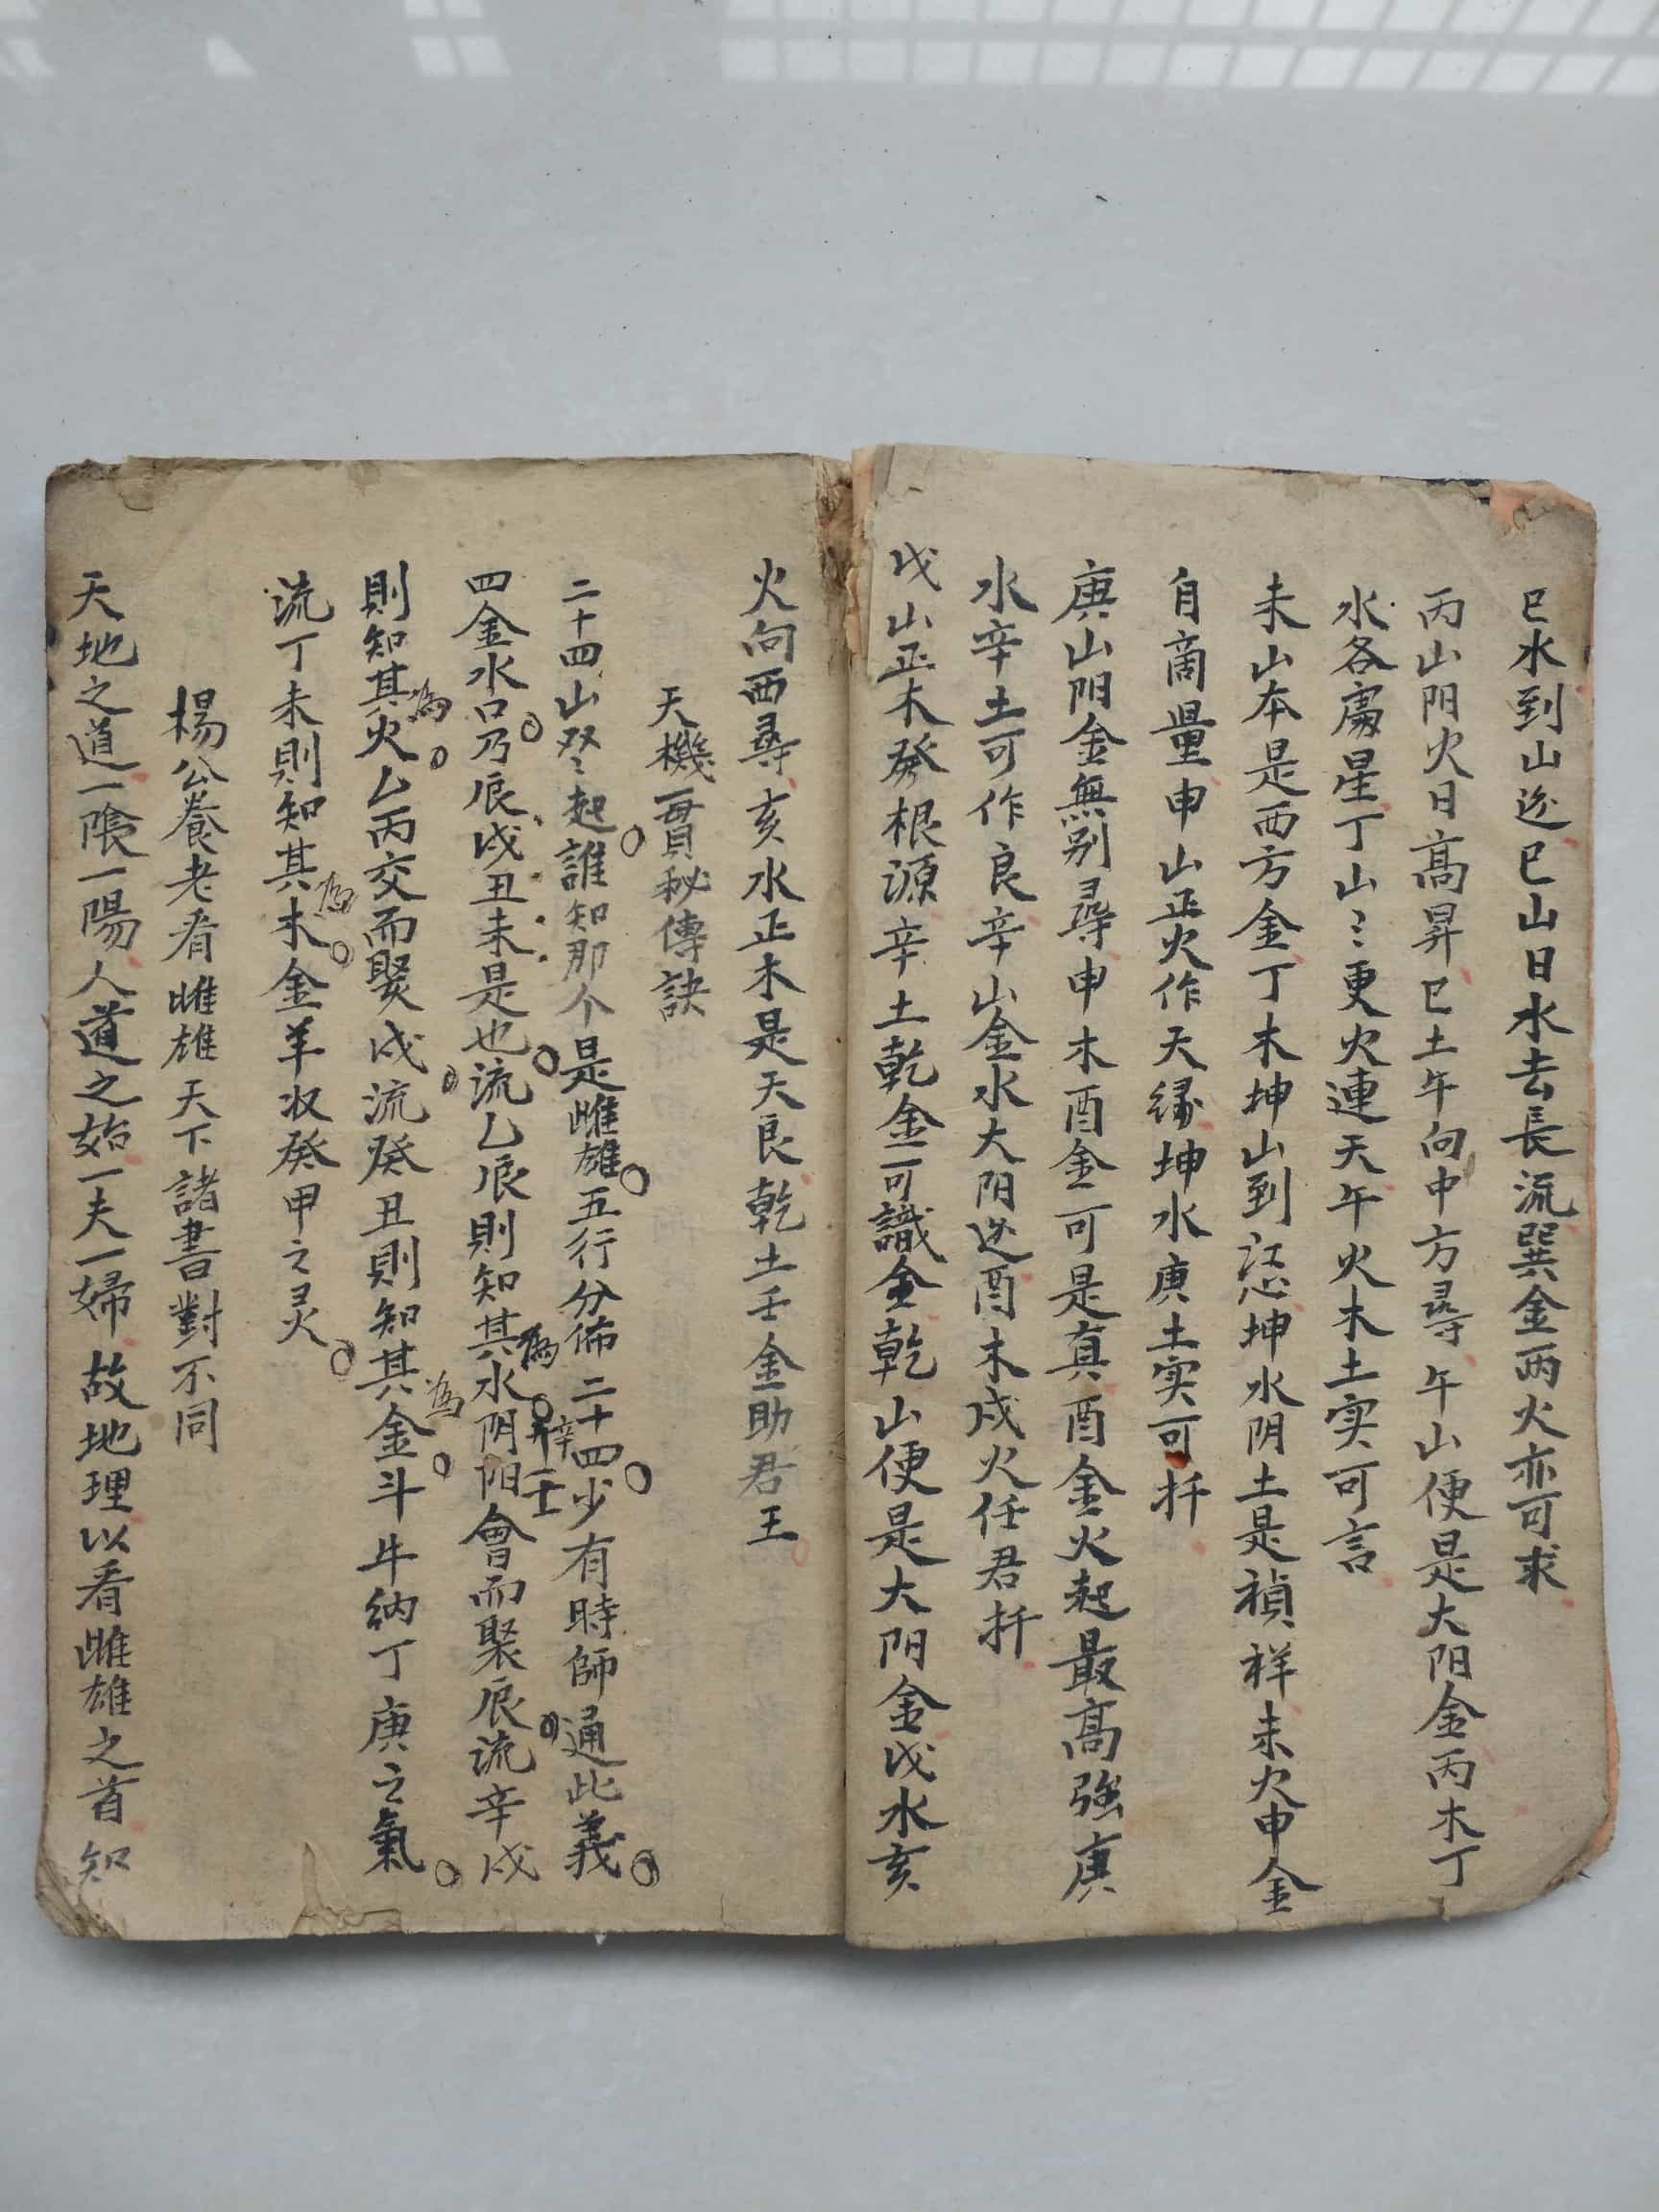 巳水到山边巳山日水去長流巽金丙火亦可求
丙山阳火日高昇巳土午向中方尋午山便是大阳金丙木丁
水各属星丁山〻更火連天午火木土实可言
未山本是西方金丁木坤山到坤水阴土是禎祥未火申金
自商量申山正火作天缘坤水庚土实可扦
庚山阳金無别尋申木酉金可是真酉金火起最高強庚
水辛土可作良辛山金水大阴边酉木戌火任君扦
戌山正木發根源辛土乾金可識全乾山便是大阳金戌水亥
火向西尋亥水正木是天良乾土壬金助君王
天機一貫秘傳訣
二十四山双〻起誰知那个是雌雄五行分佈二十四少有時師通此義
四金水口乃辰戌丑未是也流乙辰則知其為水辛壬阴阳會而聚辰流辛戌
則知其為火乙丙交而聚戌流癸丑則知其為金斗牛纳丁庚之氣
流丁未則知其為木金羊收癸甲之灵
楊公養老看雌雄天下諸書對不同
天地之道一陰一陽人道之始一夫一婦故地理以看雌雄之首知